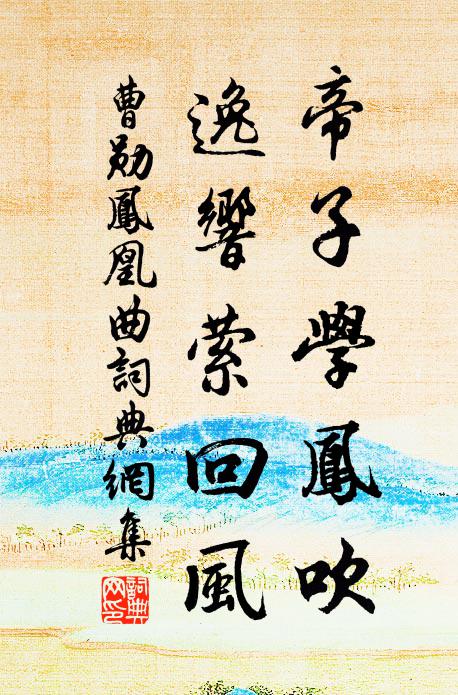 帝子學鳳吹
逸響縈回風
曹勛鳳凰曲詞典網集